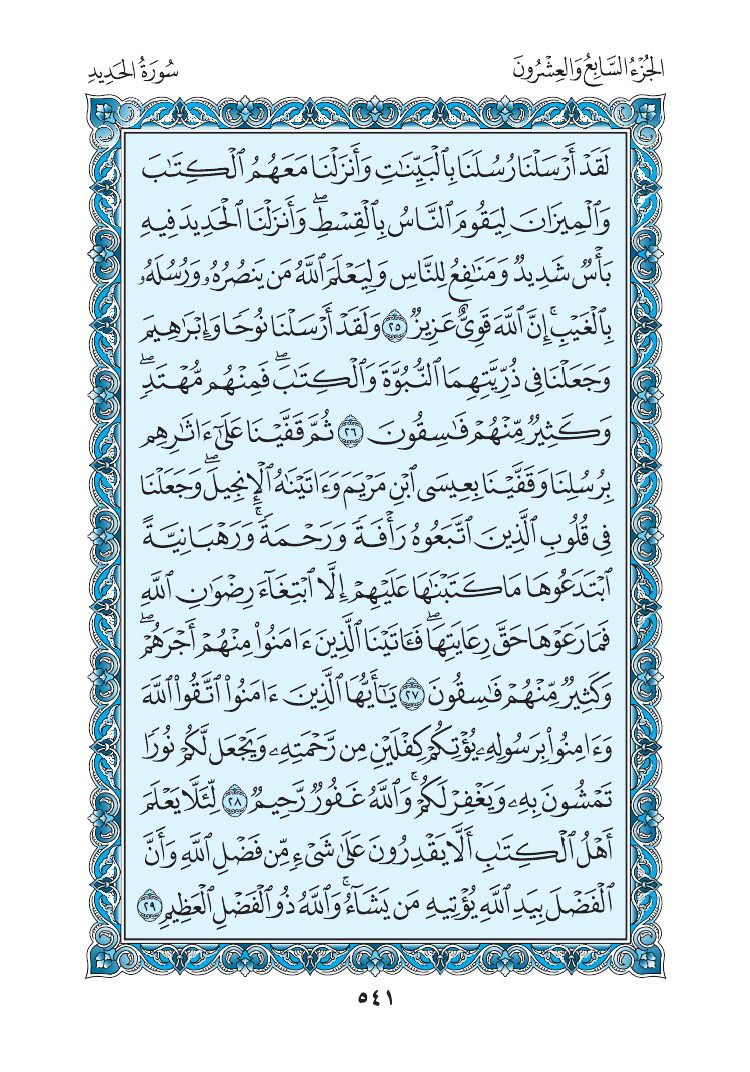 الجُزْءُ السَّابِعُ وَالعِشْرُونَ
سُورَةُ الحَدِيدِ
لَقَدۡ أَرۡسَلۡنَا رُسُلَنَا بِٱلۡبَيِّنَٰتِ وَأَنزَلۡنَا مَعَهُمُ ٱلۡكِتَٰبَ
وَٱلۡمِيزَانَ لِيَقُومَ ٱلنَّاسُ بِٱلۡقِسۡطِۖ وَأَنزَلۡنَا ٱلۡحَدِيدَ فِيهِ
بَأۡسٞ شَدِيدٞ وَمَنَٰفِعُ لِلنَّاسِ وَلِيَعۡلَمَ ٱللَّهُ مَن يَنصُرُهُۥ وَرُسُلَهُۥ
بِٱلۡغَيۡبِۚ إِنَّ ٱللَّهَ قَوِيٌّ عَزِيزٞ ٢٥ وَلَقَدۡ أَرۡسَلۡنَا نُوحٗا وَإِبۡرَٰهِيمَ
وَجَعَلۡنَا فِي ذُرِّيَّتِهِمَا ٱلنُّبُوَّةَ وَٱلۡكِتَٰبَۖ فَمِنۡهُم مُّهۡتَدٖۖ
وَكَثِيرٞ مِّنۡهُمۡ فَٰسِقُونَ ٢٦ ثُمَّ قَفَّيۡنَا عَلَىٰٓ ءَاثَٰرِهِم
بِرُسُلِنَا وَقَفَّيۡنَا بِعِيسَى ٱبۡنِ مَرۡيَمَ وَءَاتَيۡنَٰهُ ٱلۡإِنجِيلَۖ وَجَعَلۡنَا
فِي قُلُوبِ ٱلَّذِينَ ٱتَّبَعُوهُ رَأۡفَةٗ وَرَحۡمَةٗۚ وَرَهۡبَانِيَّةً
ٱبۡتَدَعُوهَا مَا كَتَبۡنَٰهَا عَلَيۡهِمۡ إِلَّا ٱبۡتِغَآءَ رِضۡوَٰنِ ٱللَّهِ
فَمَا رَعَوۡهَا حَقَّ رِعَايَتِهَاۖ فَـَٔاتَيۡنَا ٱلَّذِينَ ءَامَنُواْ مِنۡهُمۡ أَجۡرَهُمۡۖ
وَكَثِيرٞ مِّنۡهُمۡ فَٰسِقُونَ ٢٧ يَٰٓأَيُّهَا ٱلَّذِينَ ءَامَنُواْ ٱتَّقُواْ ٱللَّهَ
وَءَامِنُواْ بِرَسُولِهِۦ يُؤۡتِكُمۡ كِفۡلَيۡنِ مِن رَّحۡمَتِهِۦ وَيَجۡعَل لَّكُمۡ نُورٗا
تَمۡشُونَ بِهِۦ وَيَغۡفِرۡ لَكُمۡۚ وَٱللَّهُ غَفُورٞ رَّحِيمٞ ٢٨ لِّئَلَّا يَعۡلَمَ
أَهۡلُ ٱلۡكِتَٰبِ أَلَّا يَقۡدِرُونَ عَلَىٰ شَيۡءٖ مِّن فَضۡلِ ٱللَّهِ وَأَنَّ
ٱلۡفَضۡلَ بِيَدِ ٱللَّهِ يُؤۡتِيهِ مَن يَشَآءُۚ وَٱللَّهُ ذُو ٱلۡفَضۡلِ ٱلۡعَظِيمِ ٢٩
٥٤١